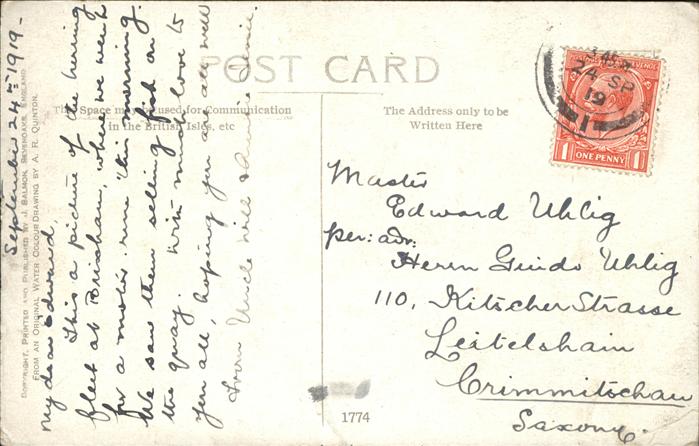 POST CARD
The Space may be used for Communication
in the British Isles, etc
The Address only to be
Written Here
COPYRIGHT, PRINTED AND PUBLISHED BY J. SALMON, SEVENOAKS, ENGLAND
FROM AN ORIGINAL WATER COLOUR DRAWING BY A. R. QUINTON.
September 24th 1919 -
My dear Edward,
This a picture of the herring
fleet at Brixham, where we went
for a motor run this morning.
We saw them selling fish on
the quay. With much love to
you all, hoping you are all well
from Uncle Will & Auntie
Master
Edward Uhlig
per: adr:
Herrn Guido Uhlig
110, Kitscher Strasse
Leitelshain
Crimmitschau
Saxony.
1774
24 SP
19
1
1 ONE PENNY 1